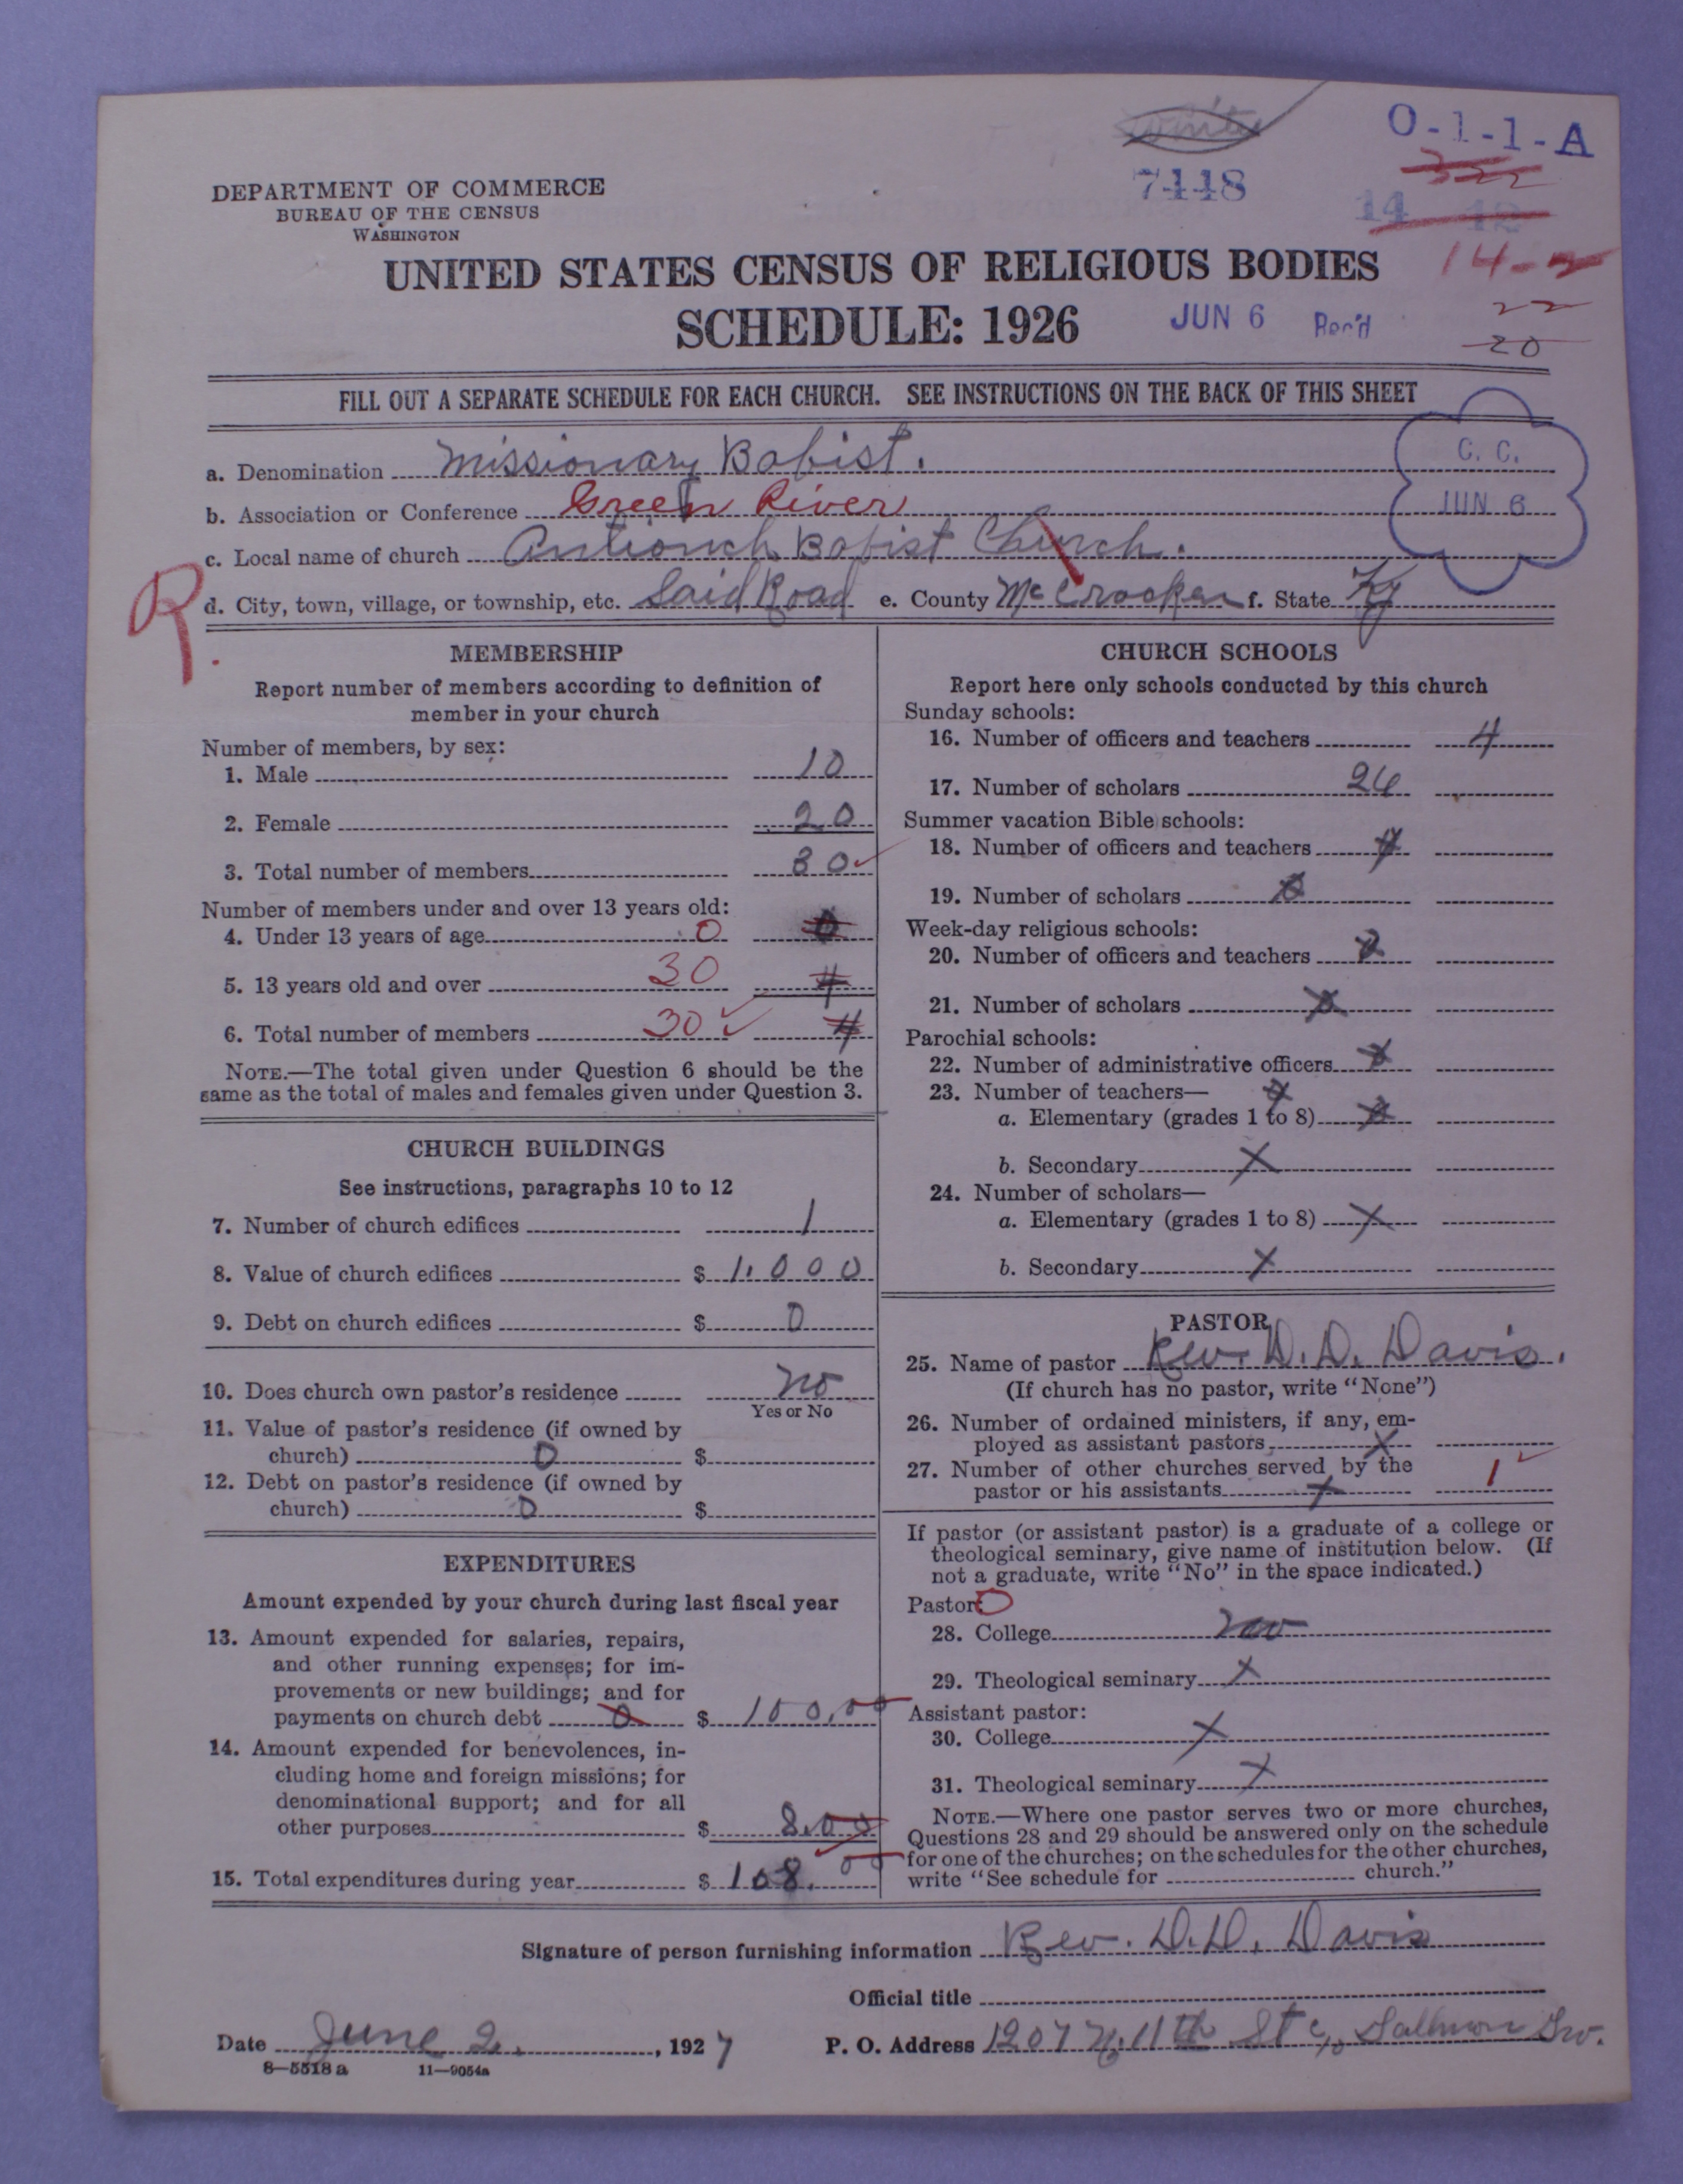 White
O-1-1-A
322
7448
14 12
14-2
DEPARTMENT OF COMMERCE
BUREAU OF THE CENSUS
WASHINGTON
UNITED STATES CENSUS OF RELIGIOUS BODIES
SCHEDULE: 1926
JUN 6 Rec'd
22
20
FILL OUT A SEPARATE SCHEDULE FOR EACH CHURCH. SEE INSTRUCTIONS ON THE BACK OF THIS SHEET
C. C.
JUN 6
a. Denomination Missionary Babist.
b. Association or Conference Green River
c. Local name of church Antiouch Babist Church.
R.
d. City, town, village, or township, etc. Said Road e. County McCrooker f. State Ky
MEMBERSHIP
Report number of members according to definition of
member in your church
Number of members, by sex:
1. Male 10
2. Female 20
3. Total number of members 30
Number of members under and over 13 years old:
4. Under 13 years of age 0 0
5. 13 years old and over 30 4
6. Total number of members 30 4
NOTE.—The total given under Question 6 should be the
same as the total of males and females given under Question 3.
CHURCH BUILDINGS
See instructions, paragraphs 10 to 12
7. Number of church edifices 1
8. Value of church edifices $ 1.000
9. Debt on church edifices $ 0
10. Does church own pastor's residence no
Yes or No
11. Value of pastor's residence (if owned by
church) 0 $
12. Debt on pastor's residence (if owned by
church) 0 $
EXPENDITURES
Amount expended by your church during last fiscal year
13. Amount expended for salaries, repairs,
and other running expenses; for im-
provements or new buildings; and for
payments on church debt 0 $ 100.00
14. Amount expended for benevolences, in-
cluding home and foreign missions; for
denominational support; and for all
other purposes $ 8.00
15. Total expenditures during year $ 108.00
CHURCH SCHOOLS
Report here only schools conducted by this church
Sunday schools:
16. Number of officers and teachers 4
17. Number of scholars 26
Summer vacation Bible schools:
18. Number of officers and teachers
19. Number of scholars
Week-day religious schools:
20. Number of officers and teachers
21. Number of scholars
Parochial schools:
22. Number of administrative officers
23. Number of teachers—
a. Elementary (grades 1 to 8)
b. Secondary X
24. Number of scholars—
a. Elementary (grades 1 to 8) X
b. Secondary X
PASTOR
25. Name of pastor Rev. D. D. Davis.
(If church has no pastor, write "None")
26. Number of ordained ministers, if any, em-
ployed as assistant pastors X
27. Number of other churches served by the
pastor or his assistants X 1
If pastor (or assistant pastor) is a graduate of a college or
theological seminary, give name of institution below. (If
not a graduate, write "No" in the space indicated.)
Pastor: O
28. College no
29. Theological seminary X
Assistant pastor:
30. College X
31. Theological seminary X
NOTE.—Where one pastor serves two or more churches,
Questions 28 and 29 should be answered only on the schedule
for one of the churches; on the schedules for the other churches,
write "See schedule for church."
Signature of person furnishing information Rev. D. D. Davis
Official title
Date June 2, 1927 P. O. Address 1207 N. 11th St
8—5518 a 11—9054a